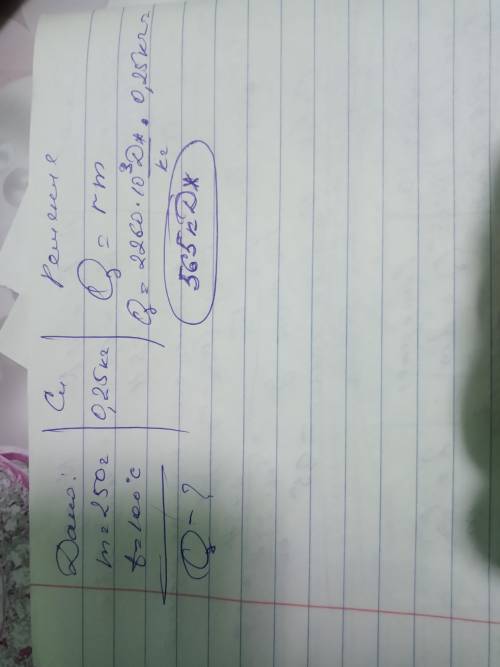 Дано:
m = 250г
t = 100°C
Q - ?
Си
0,25 кг
Решение
Q = r m
Q = 2260 · 10³ Дж/кг · 0,25 кг =
565 кДж